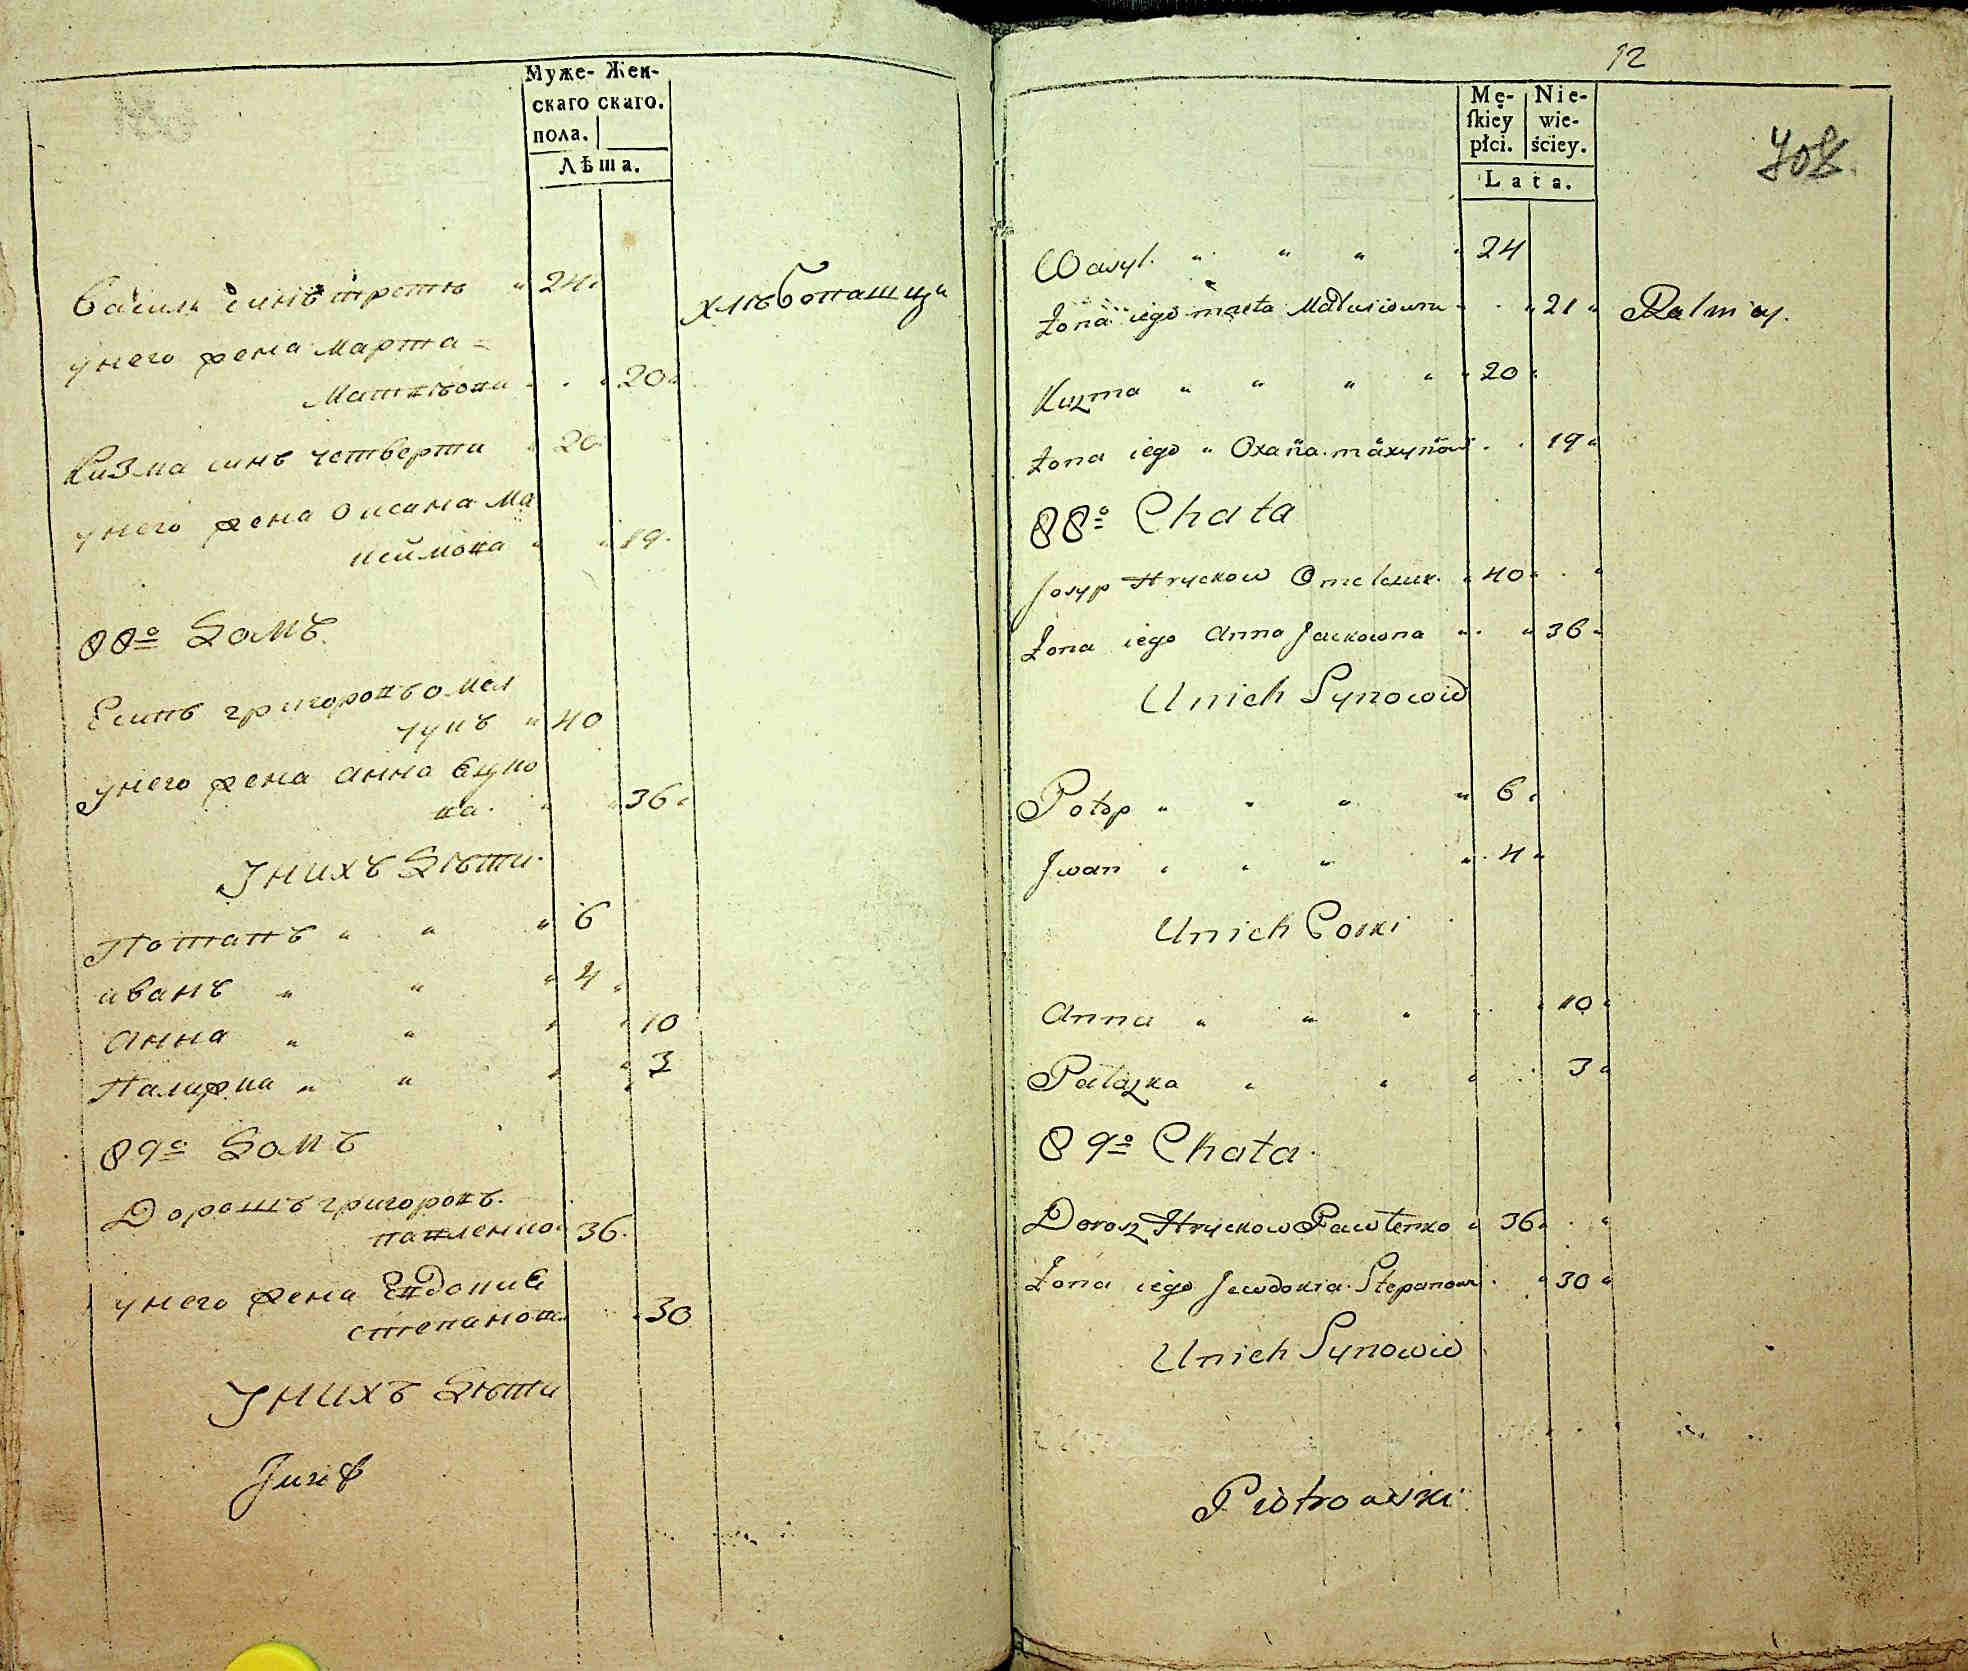 Муже- Жен-
скаго скаго.
пола.
Лѣта.
Василь синъ третъ 24
хлѣбопашци
у него жена марта
Матвѣова 20
Кизма синъ четверти 20
у него жена Оксана Ма
ксимова 19
88º Домъ
Есипъ григоровъ омел
чукъ 40
у него жена анна Яцко
ва 36
У нихъ Дѣти
Потапъ 6
иванъ 4
Анна 10
Палажка 3
89º Домъ
Дорошъ григоровъ
павленко 36
у него жена Евдокиѣ
степанов 30
У нихъ Дѣти
12
Mę- Nie-
ſkiey wie-
płci. ściey.
Lata.
Wasyl. 24
Żona iego marta Matwiowna 21 Rolniey.
Kuzma 20
Żona iego Oxana maxymow 19
88º Chata
Josyp Hryckow Omelczuk 40
Żona iego Anna Jackowna 36
Unich Synowiw
Potop 6
Jwan 4
Unich Corki
Anna 10
Palazka 3
89º Chata
Dorosz Hryckow Pawlenko 36
Żona iego Jewdokia Stepanowa 30
Unich Synowiw
Piotrowski